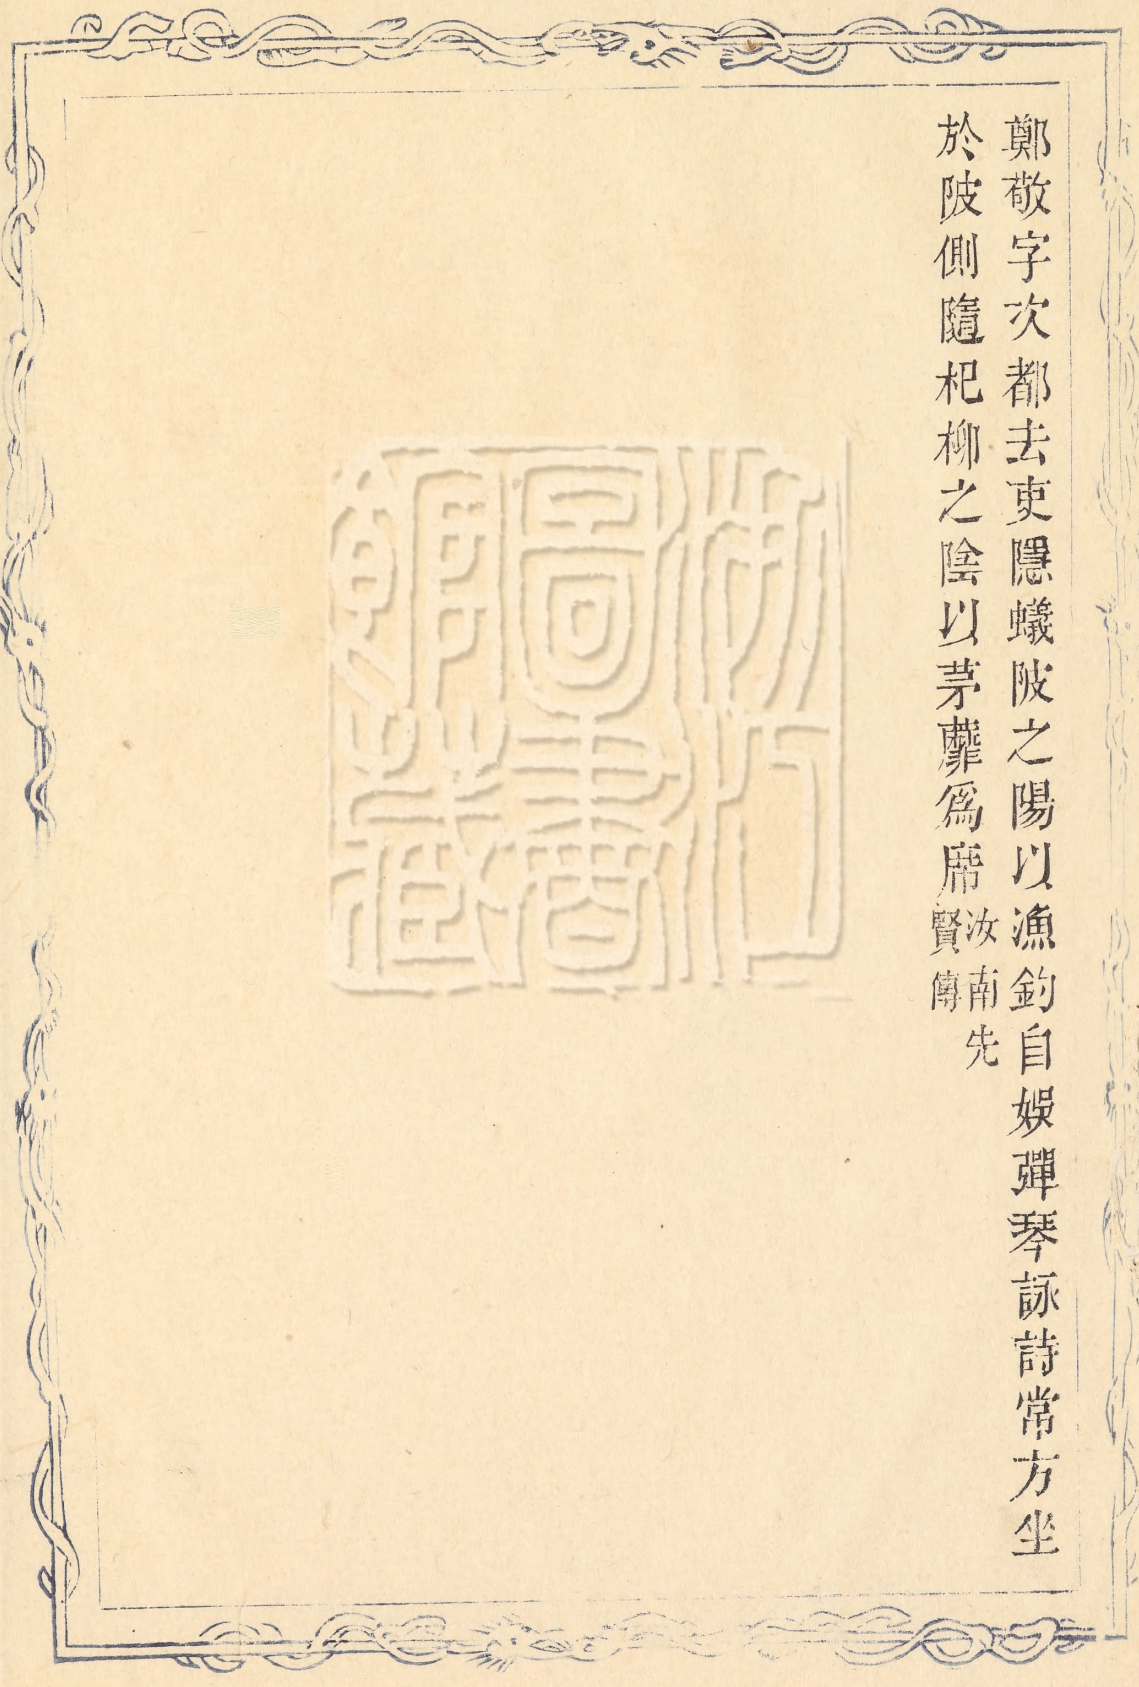 鄭敬字次都去吏隱蟻陂之陽以漁釣自娛彈琴詠詩常方坐
於陂側隨杞柳之陰以茅蘼為席汝南先
賢傳
浙江
圖書
館藏